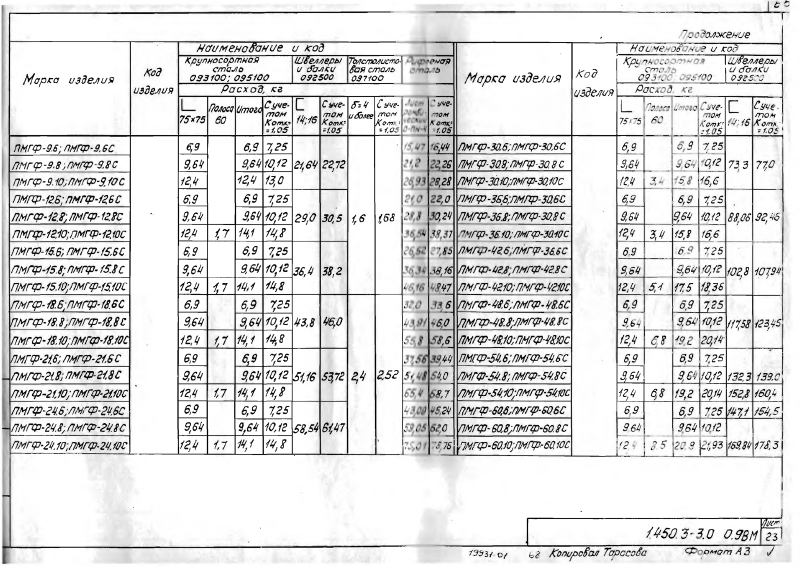 Продолжение
Марка изделия | Код изделия | Наименование и код | Марка изделия | Код изделия | Наименование и код
Крупносортная сталь 093100; 095100 | Швеллеры и балки 092500 | Толстолистовая сталь 097100 | Рифленая сталь | Крупносортная сталь 093100; 095100 | Швеллеры и балки 092500
Расход, кг | Расход, кг
∟ 75×75 | Полоса 60 | Итого | С учетом Котх. =1.05 | [ 14;16 | С учетом Котх. =1.05 | δ=4 и более | С учетом Котх. =1.05 | Лист ромбический | С учетом Котх. =1.05 | ∟ 75×75 | Полоса 60 | Итого | С учетом Котх. =1.05 | [ 14;16 | С учетом Котх. =1.05
ПМГФ-9.6; ПМГФ-9.6С 6,9 6,9 7,25 15,47 16,44 ПМГФ-30.6; ПМГФ-30.6С 6,9 6,9 7,25
ПМГФ-9.8; ПМГФ-9.8С 9,64 9,64 10,12 21,64 22,72 21,2 22,26 ПМГФ-30.8; ПМГФ-30.8С 9,64 9,64 10,12 73,3 77,0
ПМГФ-9.10; ПМГФ-9.10С 12,4 12,4 13,0 26,93 28,28 ПМГФ-30.10; ПМГФ-30.10С 12,4 3,4 15,8 16,6
ПМГФ-12.6; ПМГФ-12.6С 6,9 6,9 7,25 21,0 22,0 ПМГФ-36.6; ПМГФ-30.6С 6,9 6,9 7,25
ПМГФ-12.8; ПМГФ-12.8С 9,64 9,64 10,12 29,0 30,5 1,6 1,68 28,8 30,24 ПМГФ-36.8; ПМГФ-30.8С 9,64 9,64 10,12 88,06 92,46
ПМГФ-12.10; ПМГФ-12.10С 12,4 1,7 14,1 14,8 36,54 38,37 ПМГФ-36.10; ПМГФ-30.10С 12,4 3,4 15,8 16,6
ПМГФ-15.6; ПМГФ-15.6С 6,9 6,9 7,25 26,52 27,85 ПМГФ-42.6; ПМГФ-36.6С 6,9 6,9 7,25
ПМГФ-15.8; ПМГФ-15.8С 9,64 9,64 10,12 36,4 38,2 36,34 38,16 ПМГФ-42.8; ПМГФ-42.8С 9,64 9,64 10,12 102,8 107,94
ПМГФ-15.10; ПМГФ-15.10С 12,4 1,7 14,1 14,8 46,16 48,47 ПМГФ-42.10; ПМГФ-42.10С 12,4 5,1 17,5 18,36
ПМГФ-18.6; ПМГФ-18.6С 6,9 6,9 7,25 32,0 33,6 ПМГФ-48.6; ПМГФ-48.6С 6,9 6,9 7,25
ПМГФ-18.8; ПМГФ-18.8С 9,64 9,64 10,12 43,8 46,0 43,91 46,0 ПМГФ-48.8; ПМГФ-48.8С 9,64 9,64 10,12 117,58 123,45
ПМГФ-18.10; ПМГФ-18.10С 12,4 1,7 14,1 14,8 55,8 58,6 ПМГФ-48.10; ПМГФ-48.10С 12,4 6,8 19,2 20,14
ПМГФ-21.6; ПМГФ-21.6С 6,9 6,9 7,25 37,56 39,44 ПМГФ-54.6; ПМГФ-54.6С 6,9 6,9 7,25
ПМГФ-21.8; ПМГФ-21.8С 9,64 9,64 10,12 51,16 53,72 2,4 2,52 51,48 54,0 ПМГФ-54.8; ПМГФ-54.8С 9,64 9,64 10,12 132,3 139,0
ПМГФ-21.10; ПМГФ-21.10С 12,4 1,7 14,1 14,8 65,4 68,7 ПМГФ-54.10; ПМГФ-54.10С 12,4 6,8 19,2 20,14 152,8 160,4
ПМГФ-24.6; ПМГФ-24.6С 6,9 6,9 7,25 43,09 45,24 ПМГФ-60.6; ПМГФ-60.6С 6,9 6,9 7,25 147,1 154,5
ПМГФ-24.8; ПМГФ-24.8С 9,64 9,64 10,12 58,54 61,47 59,05 62,0 ПМГФ-60.8; ПМГФ-60.8С 9,64 9,64 10,12
ПМГФ-24.10; ПМГФ-24.10С 12,4 1,7 14,1 14,8 75,01 78,76 ПМГФ-60.10; ПМГФ-60.10С 12,4 8.5 20.9 21,93 169,84 178,3
1.450.3-3.0 0.98М Лист 23
19931-01 62 Копировал Тарасова Формат А3